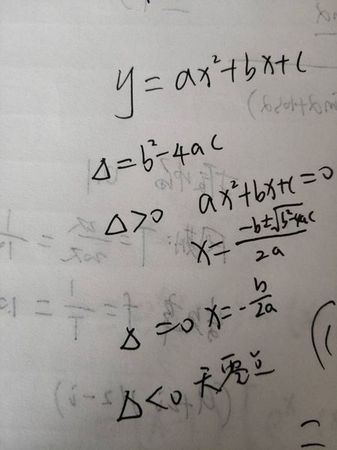 y = ax²+bx+c
Δ=b²-4ac
Δ>0 ax²+bx+c=0
x= -b±√b²-4ac / 2a
Δ=0 x=-b/2a
Δ<0 无零点